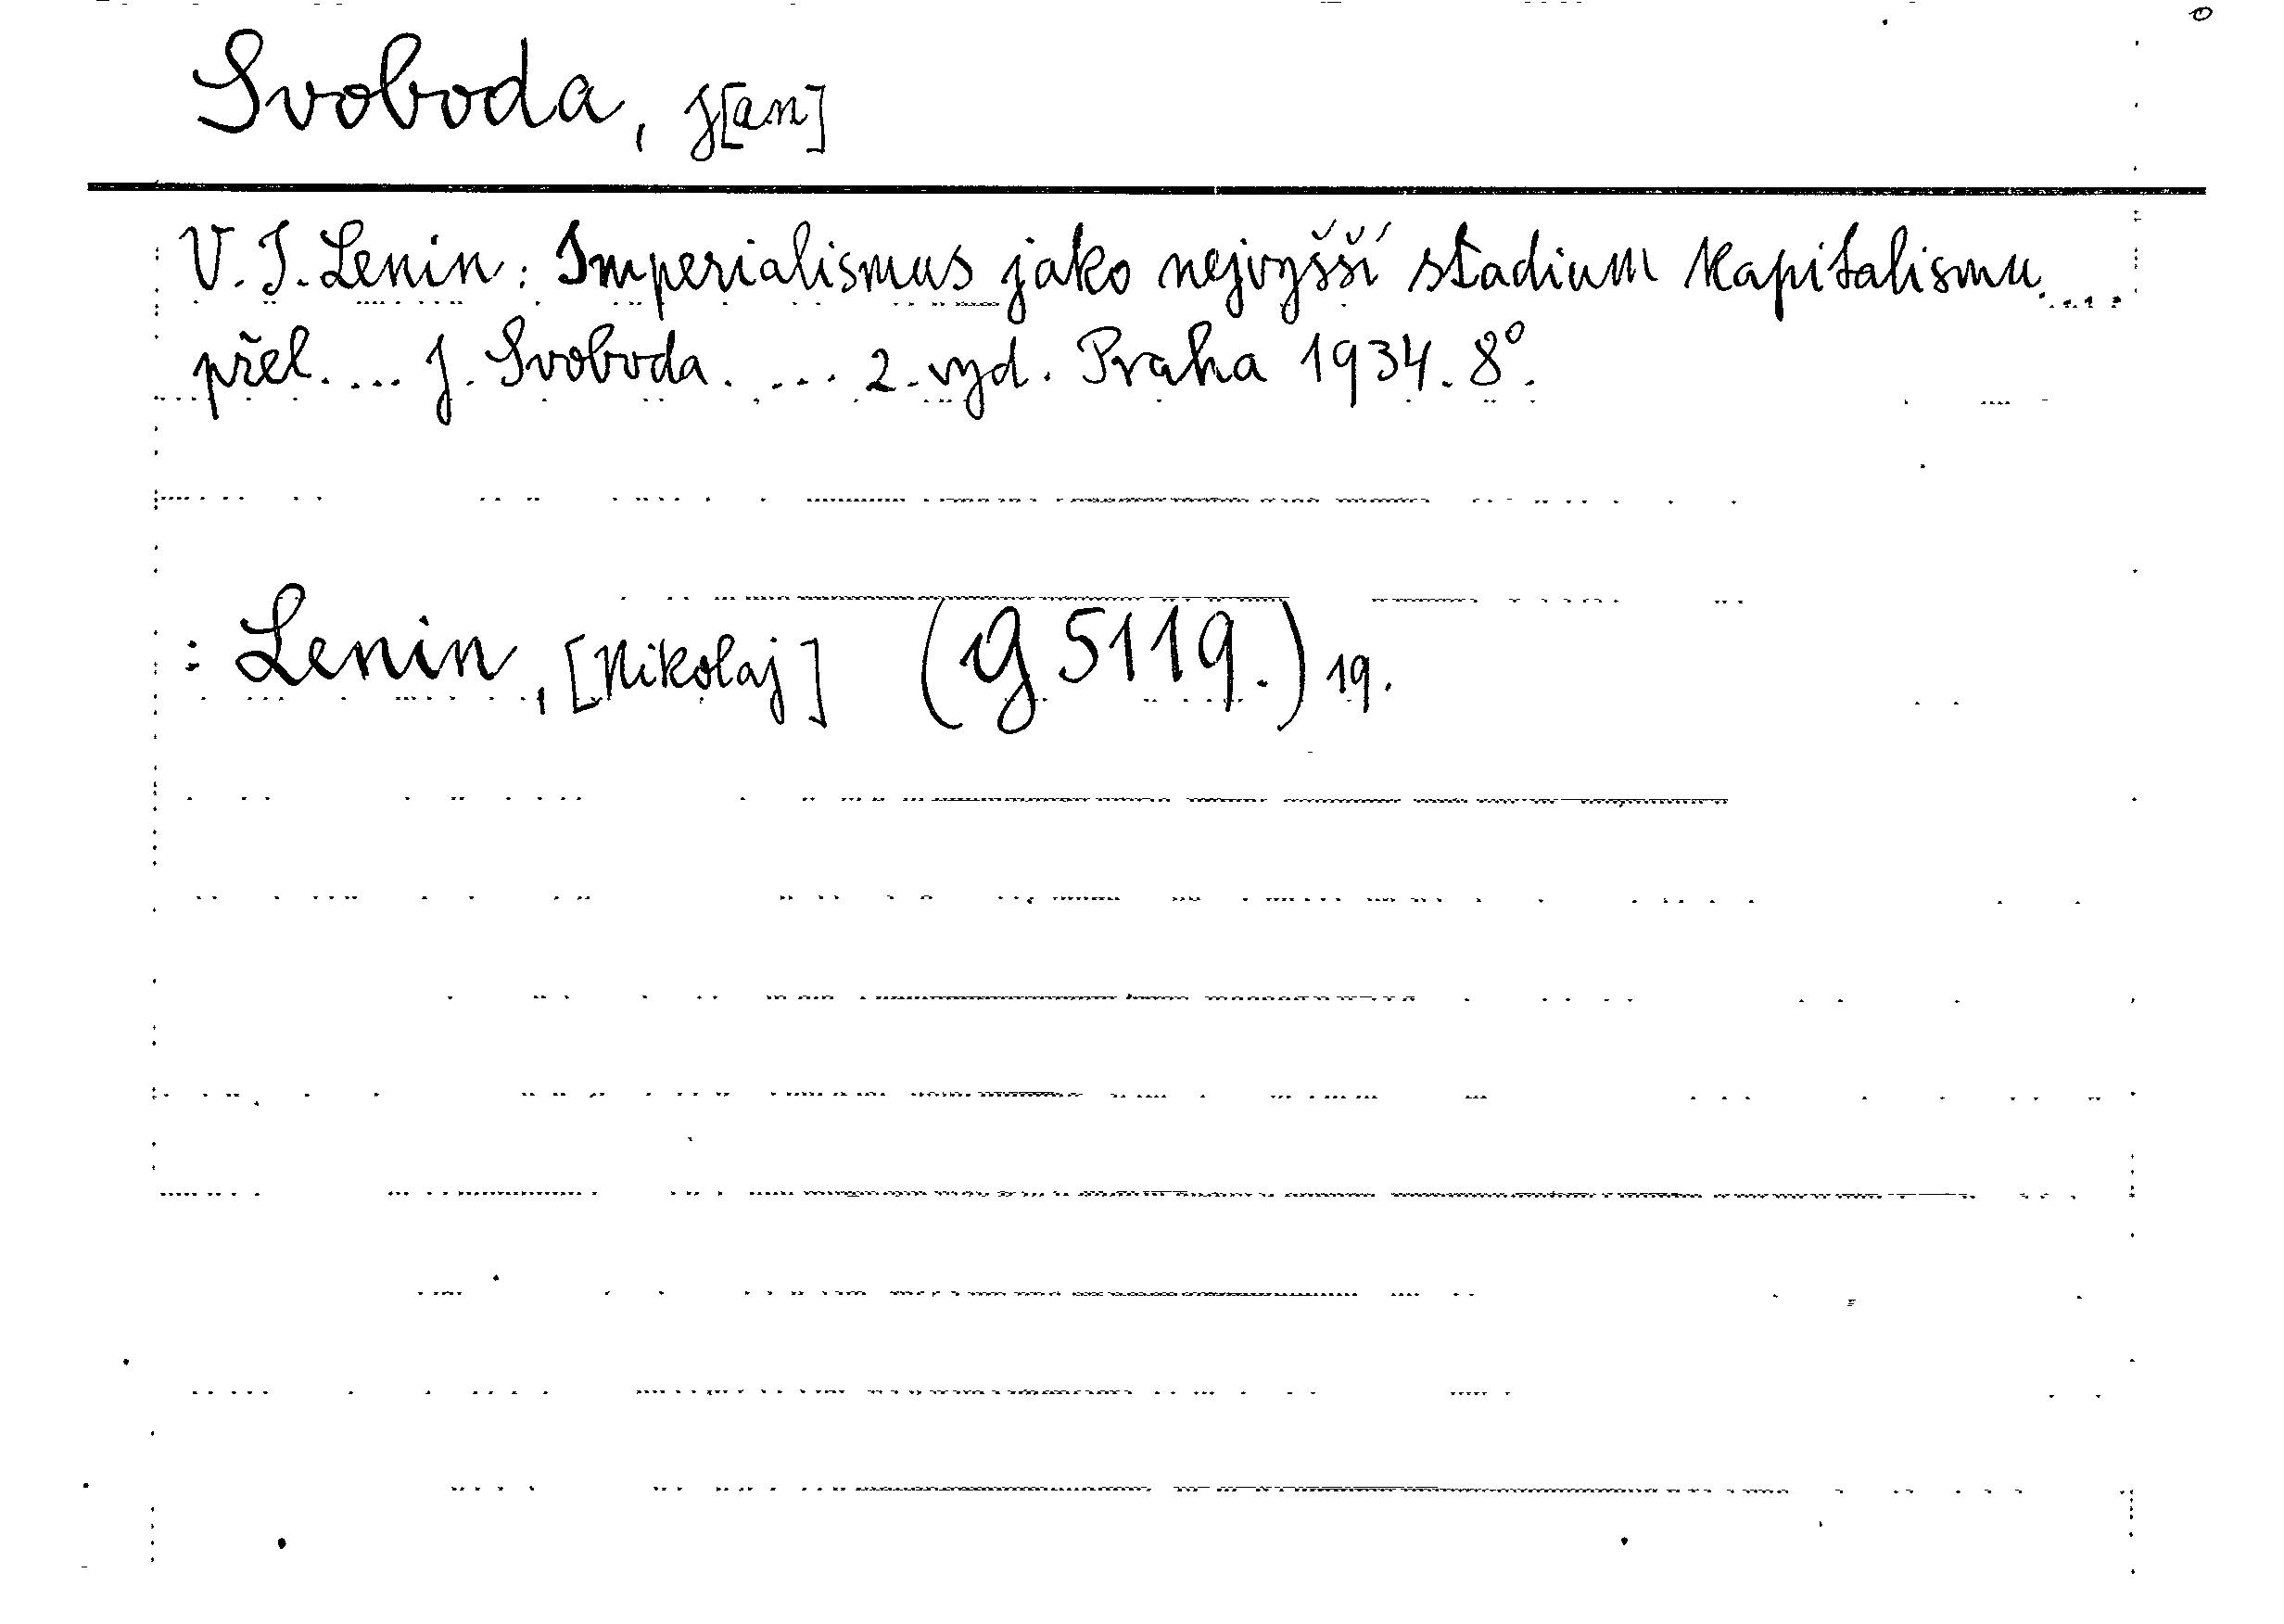 Svoboda, J[an]
V. I. Lenin: Imperialismus jako nejvyšší stadium kapitalismu....
přel. ... J. Svoboda. ... 2. vyd. Praha 1934. 8°.
: Lenin, [Nikolaj] (G 5119.) 19.